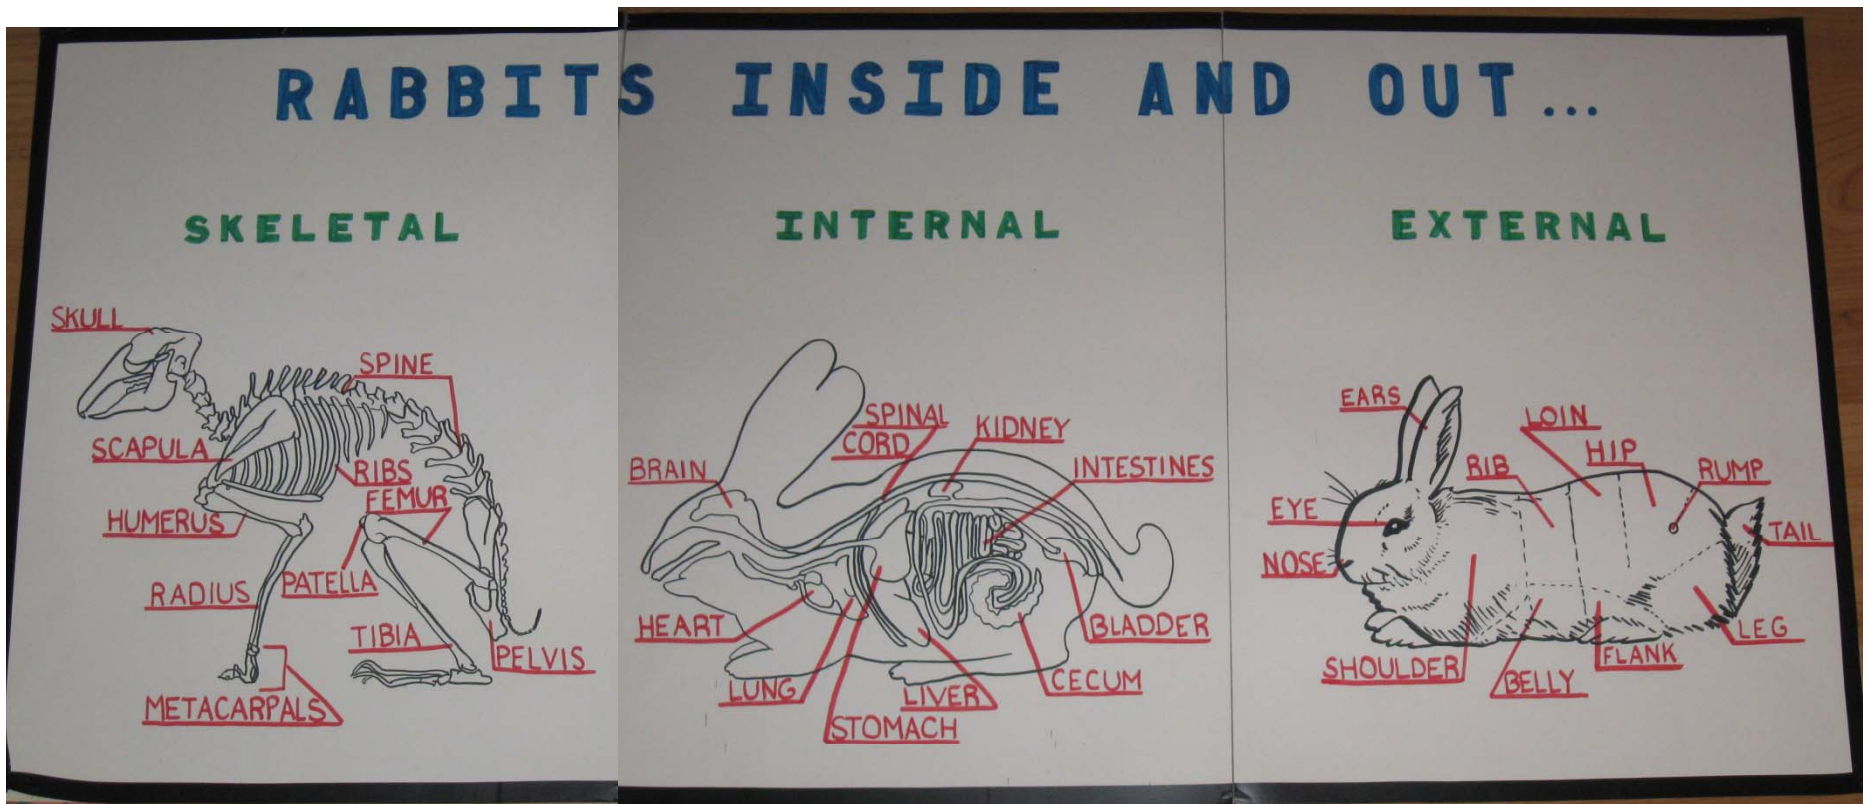 RABBITS INSIDE AND OUT...
SKELETAL
SKULL
SPINE
SCAPULA
RIBS
FEMUR
HUMERUS
PATELLA
RADIUS
TIBIA
PELVIS
METACARPALS
INTERNAL
SPINAL
CORD
KIDNEY
BRAIN
INTESTINES
HEART
BLADDER
LUNG
LIVER
CECUM
STOMACH
EXTERNAL
EARS
LOIN
HIP
RIB
RUMP
EYE
TAIL
NOSE
LEG
SHOULDER
FLANK
BELLY